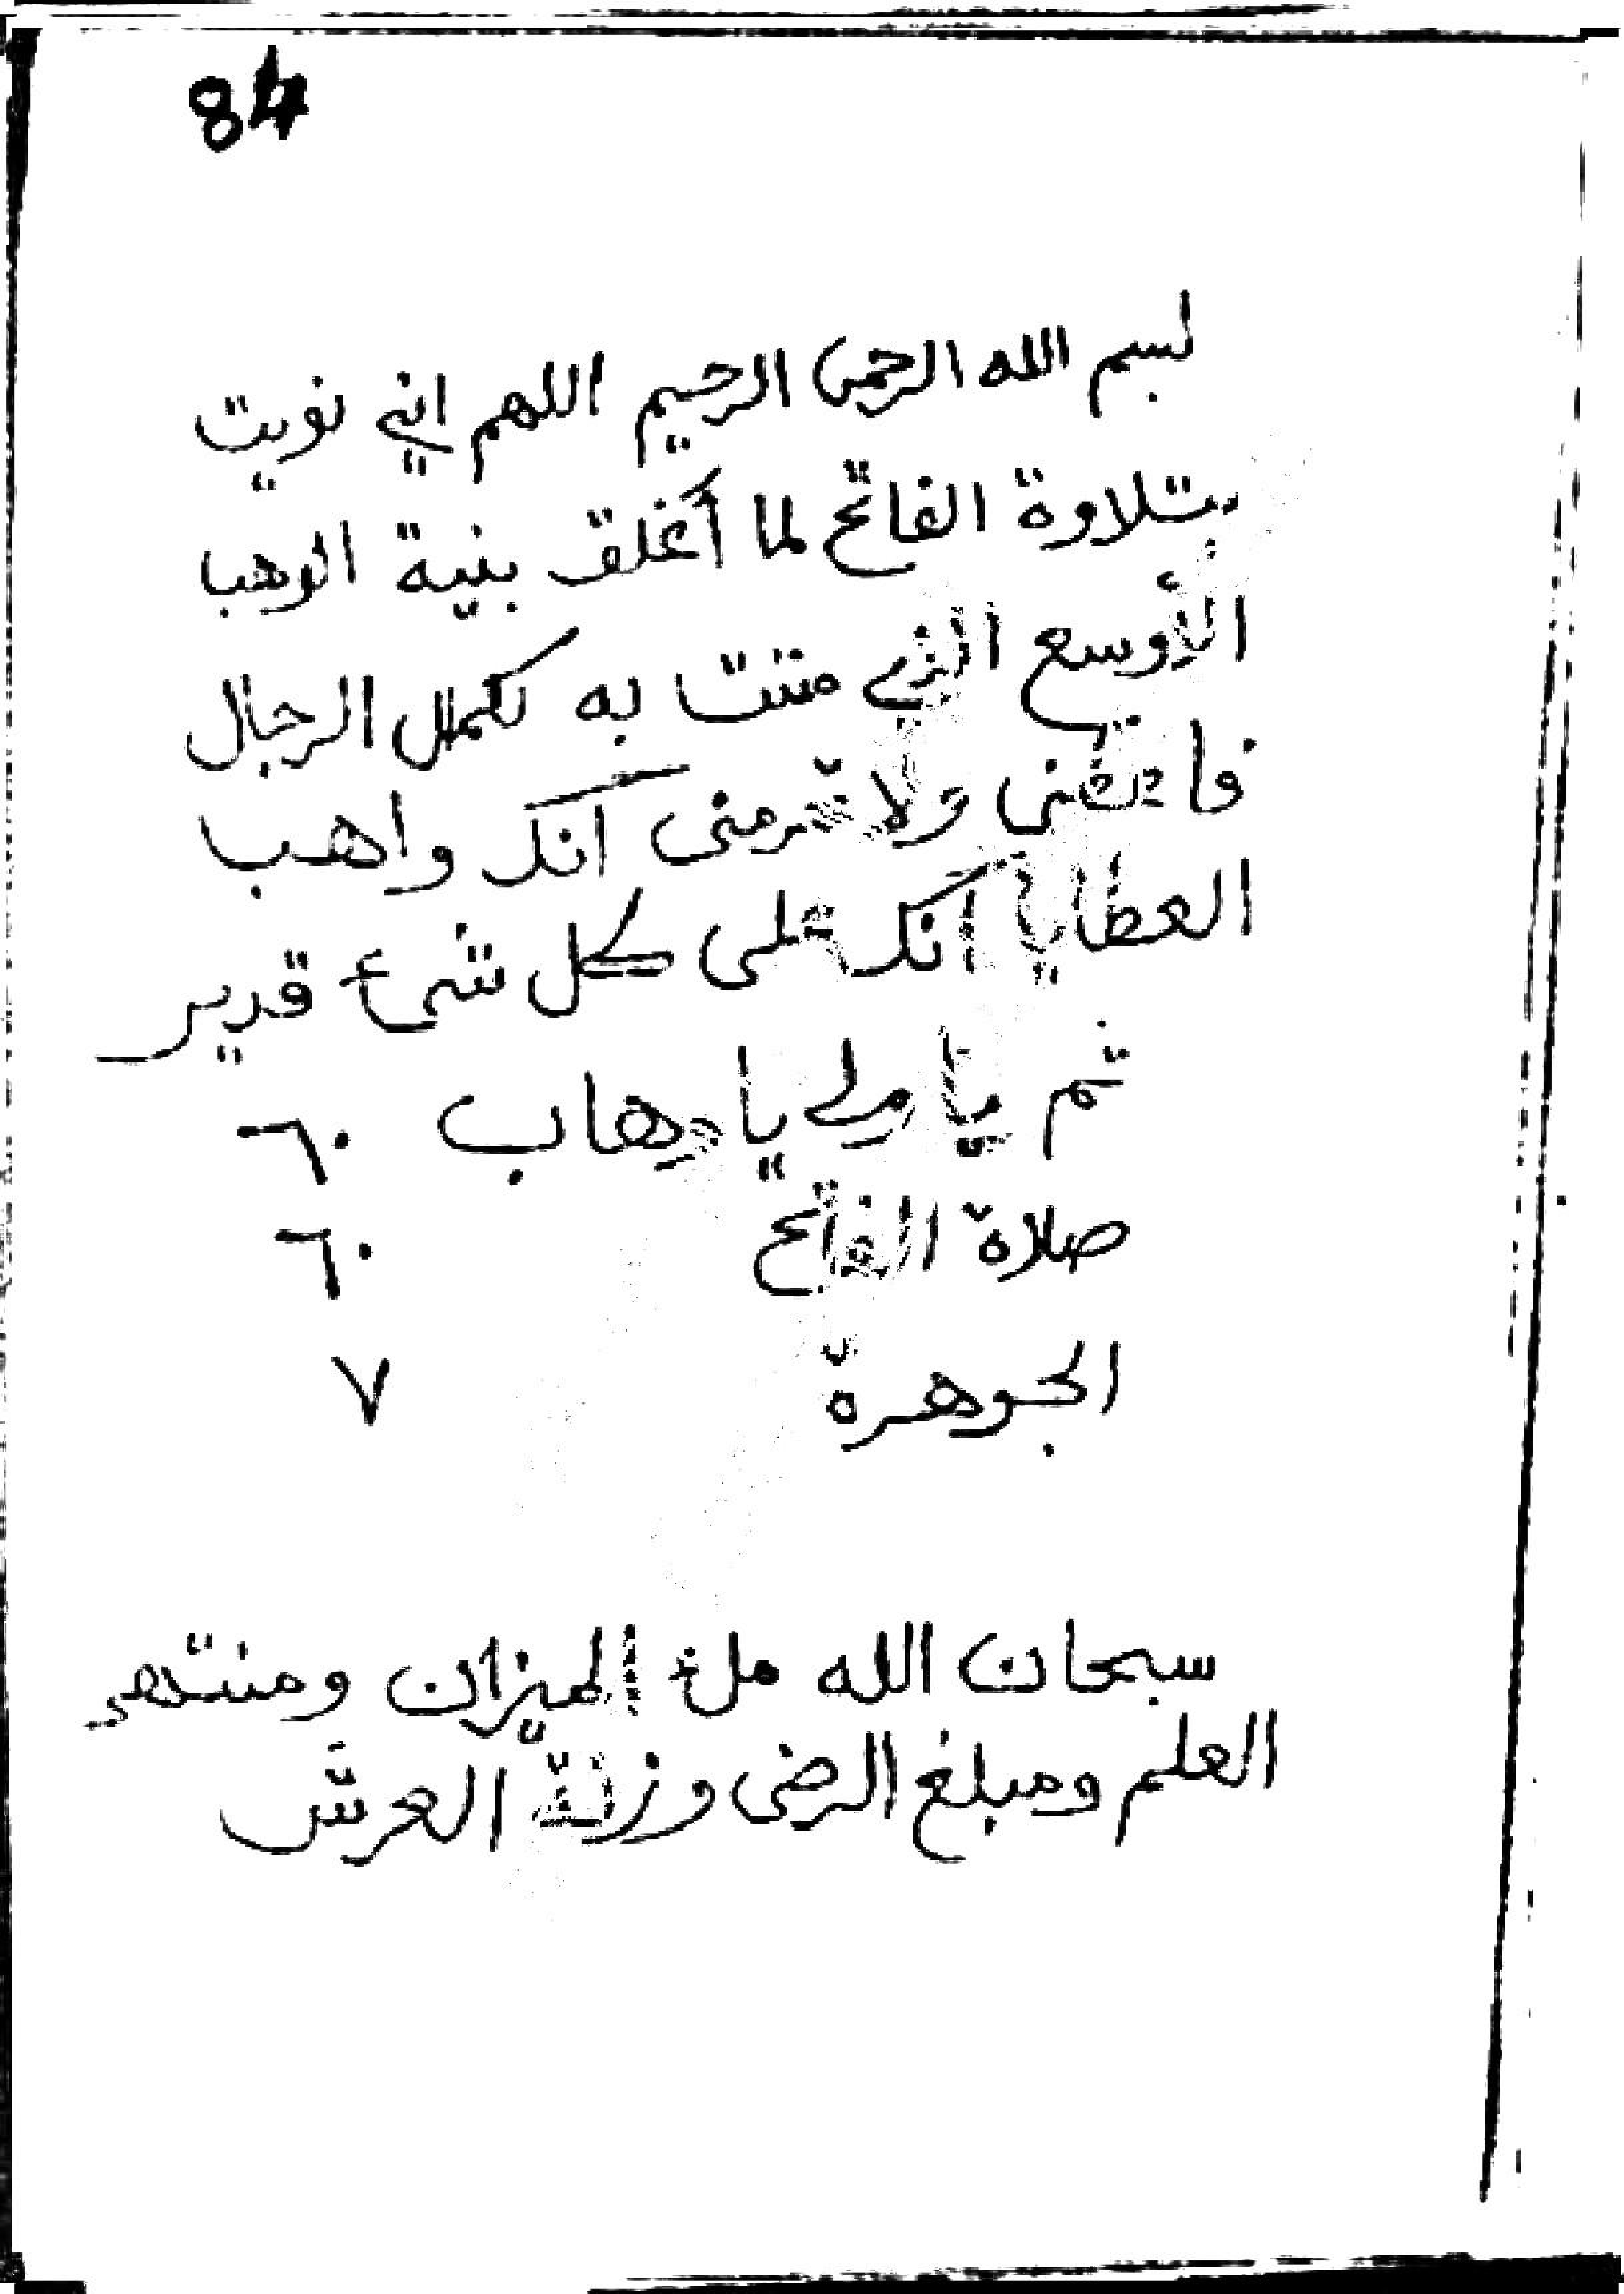 84
بسم الله الرحمن الرحيم اللهم اني نويت
بتلاوة الفاتح لما أغلق بنية الوهب
الأوسع الذي مننت به لكمل الرجال
ولا تحرمنى انك واهب
العطايا انك على كل شىء قدير
ثم يا ولي يا وهاب ٦٠
صلاة الفاتح ٦٠
الجوهرة ٧
سبحان الله ملء الميزان ومنتهى
العلم ومبلغ الرضى وزنة العرش